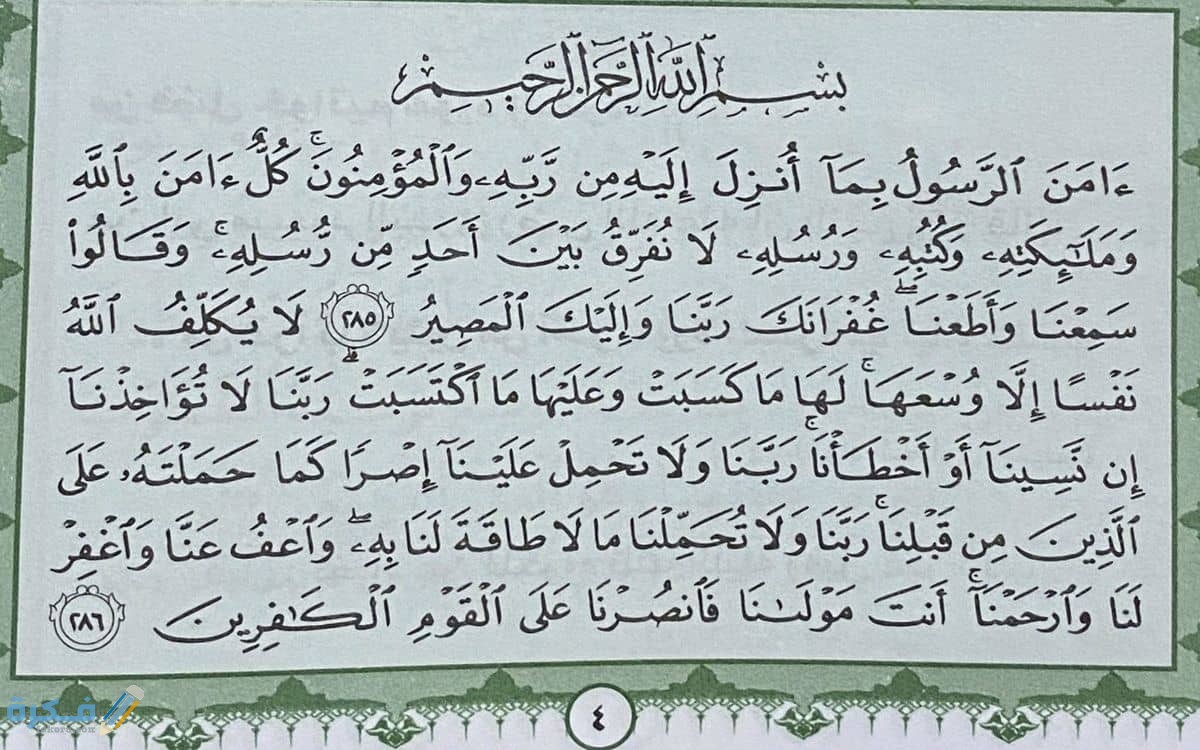 بِسْمِ ٱللَّهِ ٱلرَّحْمَٰنِ ٱلرَّحِيمِ
ءَامَنَ ٱلرَّسُولُ بِمَآ أُنزِلَ إِلَيْهِ مِن رَّبِّهِۦ وَٱلْمُؤْمِنُونَۚ كُلٌّ ءَامَنَ بِٱللَّهِ
وَمَلَٰٓئِكَتِهِۦ وَكُتُبِهِۦ وَرُسُلِهِۦ لَا نُفَرِّقُ بَيْنَ أَحَدٍ مِّن رُّسُلِهِۦۚ وَقَالُوا۟
سَمِعْنَا وَأَطَعْنَاۖ غُفْرَانَكَ رَبَّنَا وَإِلَيْكَ ٱلْمَصِيرُ ٢٨٥ لَا يُكَلِّفُ ٱللَّهُ
نَفْسًا إِلَّا وُسْعَهَاۚ لَهَا مَا كَسَبَتْ وَعَلَيْهَا مَا ٱكْتَسَبَتْ رَبَّنَا لَا تُؤَاخِذْنَآ
إِن نَّسِينَآ أَوْ أَخْطَأْنَاۚ رَبَّنَا وَلَا تَحْمِلْ عَلَيْنَآ إِصْرًا كَمَا حَمَلْتَهُۥ عَلَى
ٱلَّذِينَ مِن قَبْلِنَاۚ رَبَّنَا وَلَا تُحَمِّلْنَا مَا لَا طَاقَةَ لَنَا بِهِۦۖ وَٱعْفُ عَنَّا وَٱغْفِرْ
لَنَا وَٱرْحَمْنَآۚ أَنتَ مَوْلَىٰنَا فَٱنصُرْنَا عَلَى ٱلْقَوْمِ ٱلْكَٰفِرِينَ ٢٨٦
٤
فكرة